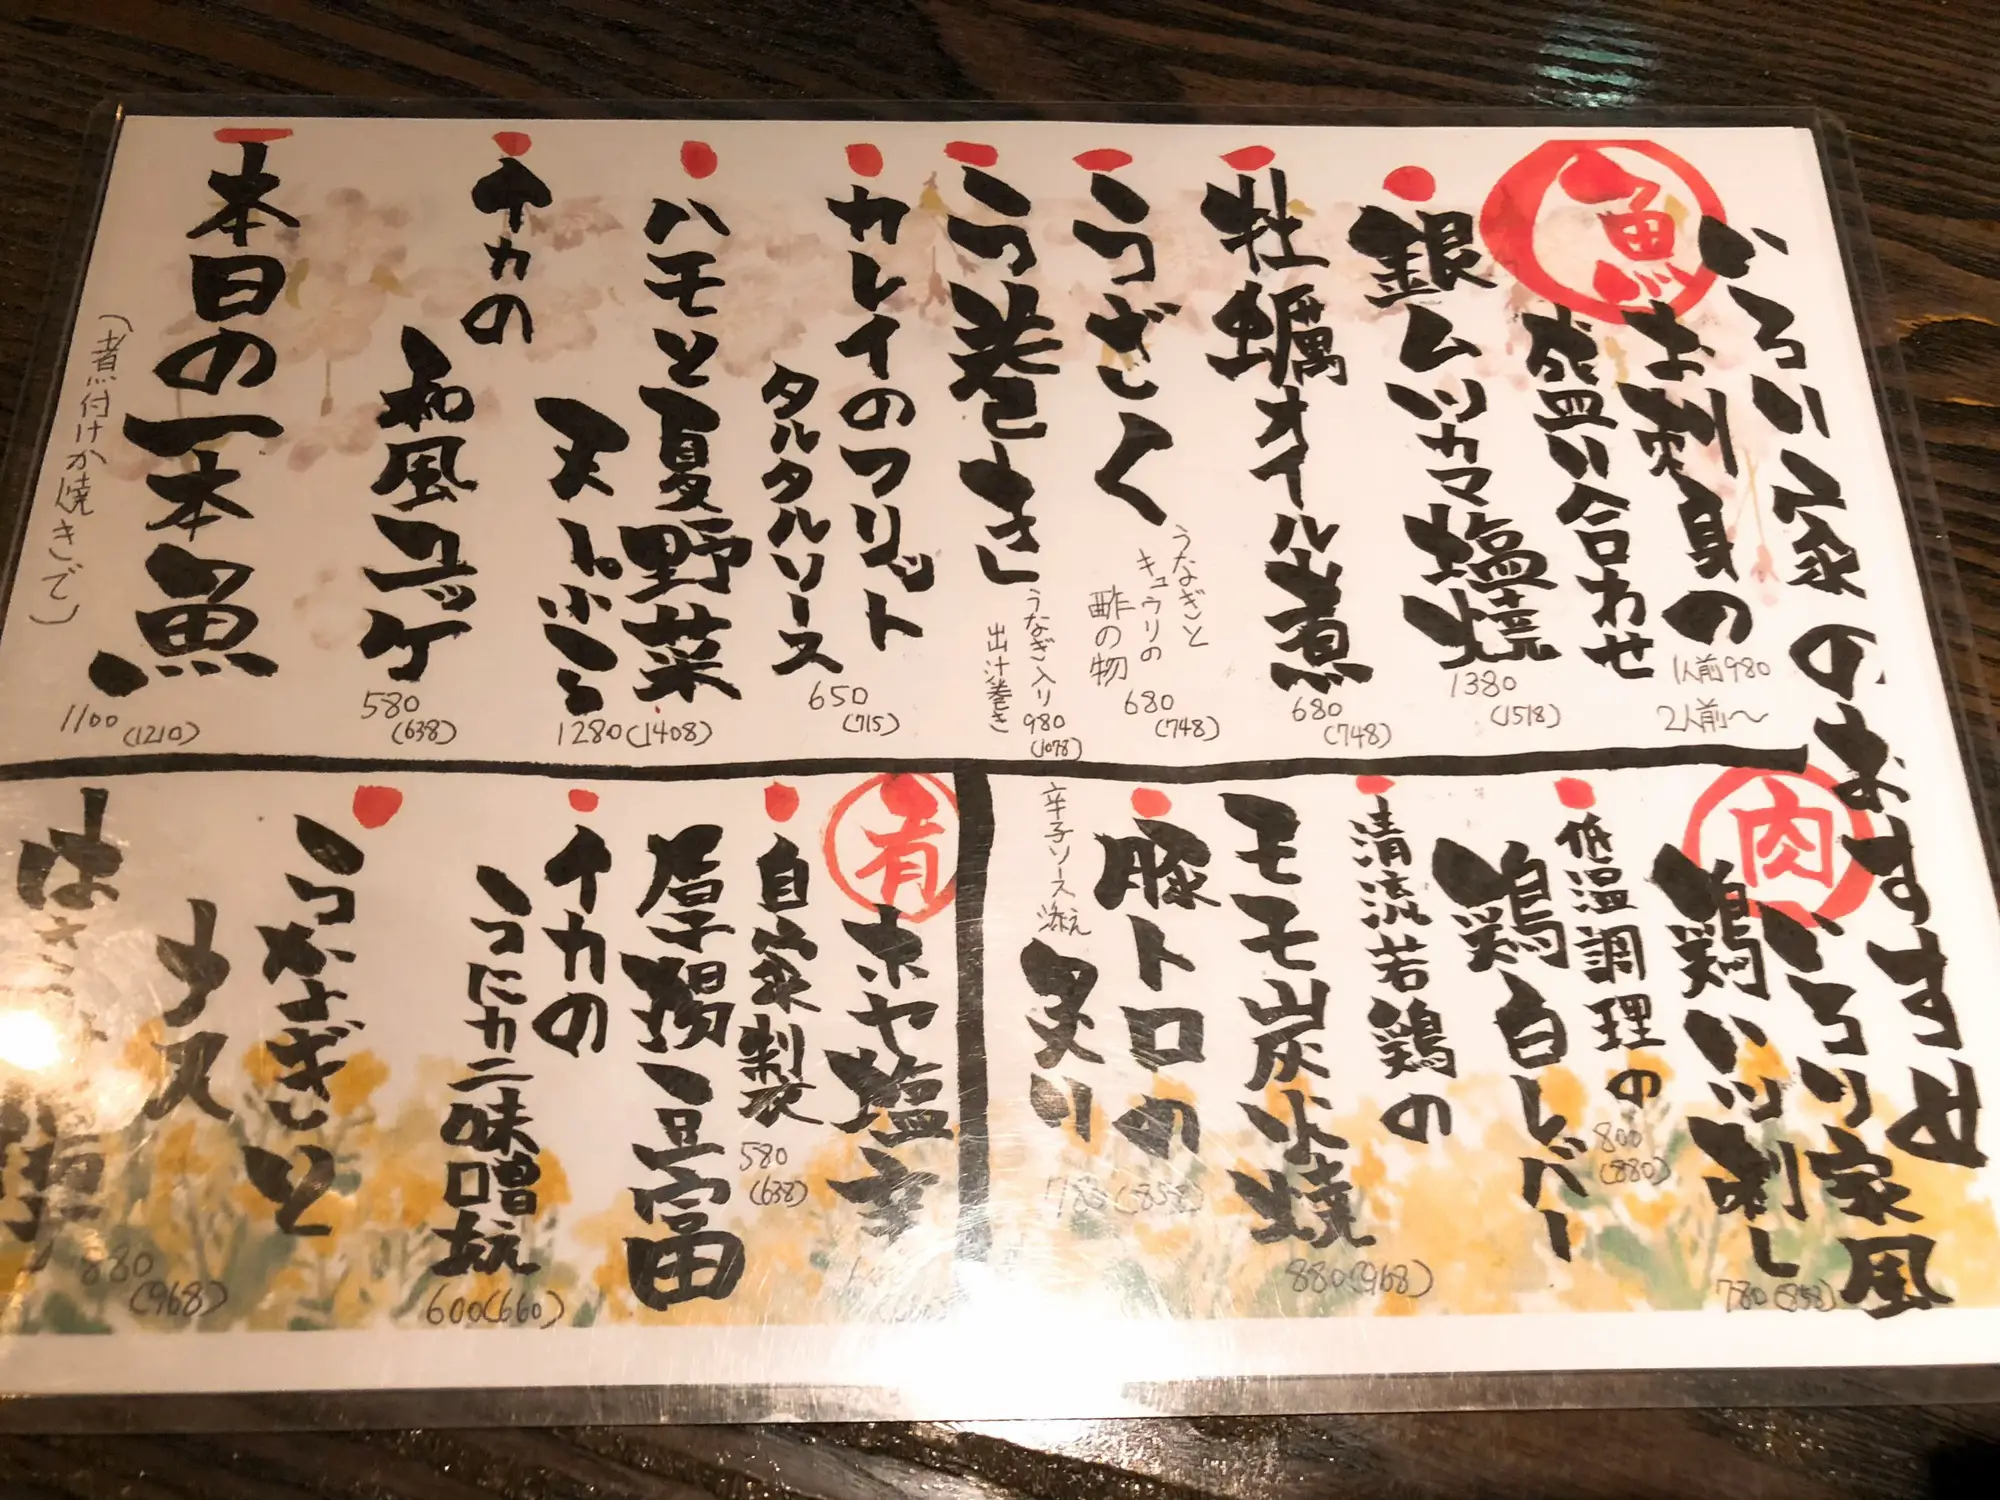 いろり家のおすすめ
魚
お刺身の
盛り合わせ
1人前980
2人前〜
銀ムツカマ塩焼
1380
(1518)
牡蠣オイル煮
680
(748)
うざく
うなぎと
キュウリの
酢の物
680
(748)
う巻き
うなぎ入り
出汁巻き
980
(1078)
カレイのフリット
タルタルソース
650
(715)
ハモと夏野菜
天ぷら
1280(1408)
イカの
和風ユッケ
580
(638)
本日の一本魚
(煮付けか焼きで)
1100
(1210)
肉
いろり家風
鶏ハツ刺し
780(858)
低温調理の
鶏白レバー
800
(880)
清流若鶏の
モモ炭火焼
880(968)
豚トロの
炙り
辛子ソース添え
780(858)
肴
ホヤ塩辛
自家製
厚揚豆富
580
(638)
イカの
うにカニ味噌和
600(660)
うなぎと
ナス
はさみ
880
(968)